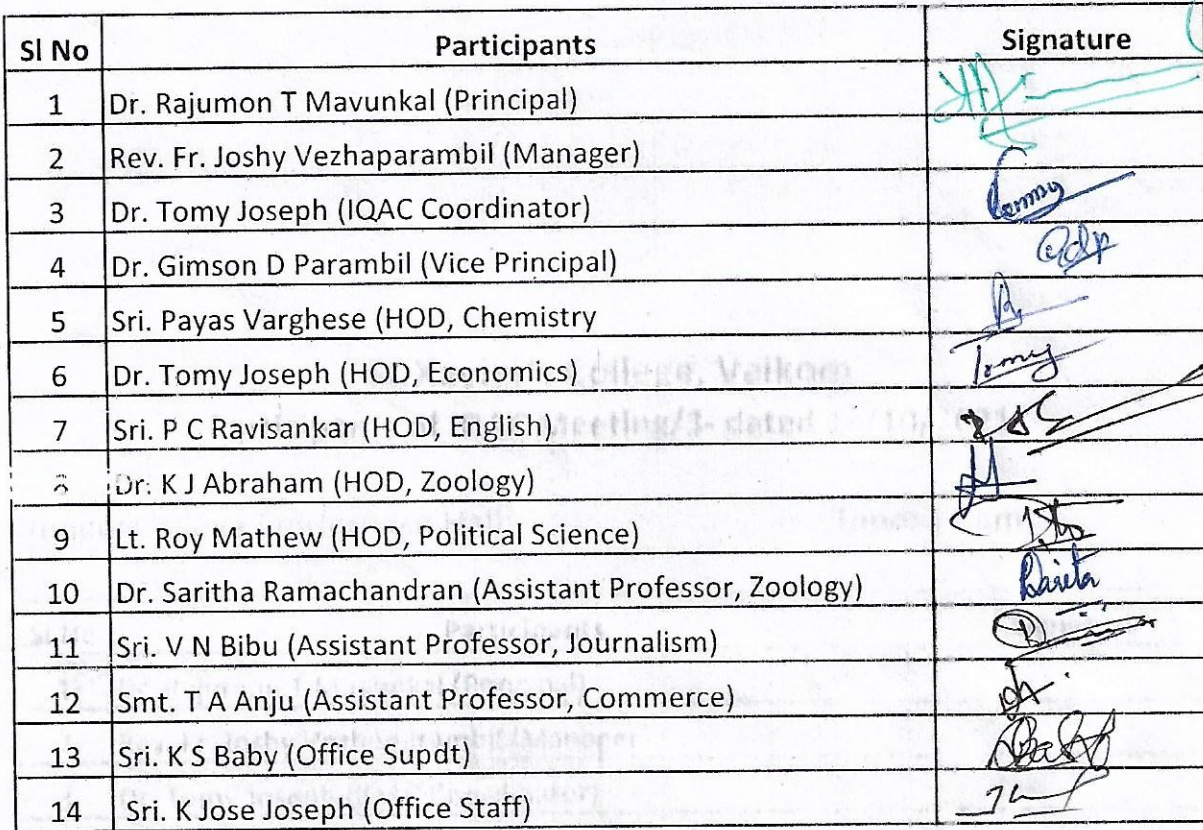 Sl No Participants Signature
1 Dr. Rajumon T Mavunkal (Principal)
2 Rev. Fr. Joshy Vezhaparambil (Manager)
3 Dr. Tomy Joseph (IQAC Coordinator) Tommy
4 Dr. Gimson D Parambil (Vice Principal)
5 Sri. Payas Varghese (HOD, Chemistry
6 Dr. Tomy Joseph (HOD, Economics) Tomy
7 Sri. P C Ravisankar (HOD, English)
Dr. K J Abraham (HOD, Zoology)
9 Lt. Roy Mathew (HOD, Political Science)
10 Dr. Saritha Ramachandran (Assistant Professor, Zoology)
11 Sri. V N Bibu (Assistant Professor, Journalism)
12 Smt. T A Anju (Assistant Professor, Commerce)
13 Sri. K S Baby (Office Supdt)
14 Sri. K Jose Joseph (Office Staff)